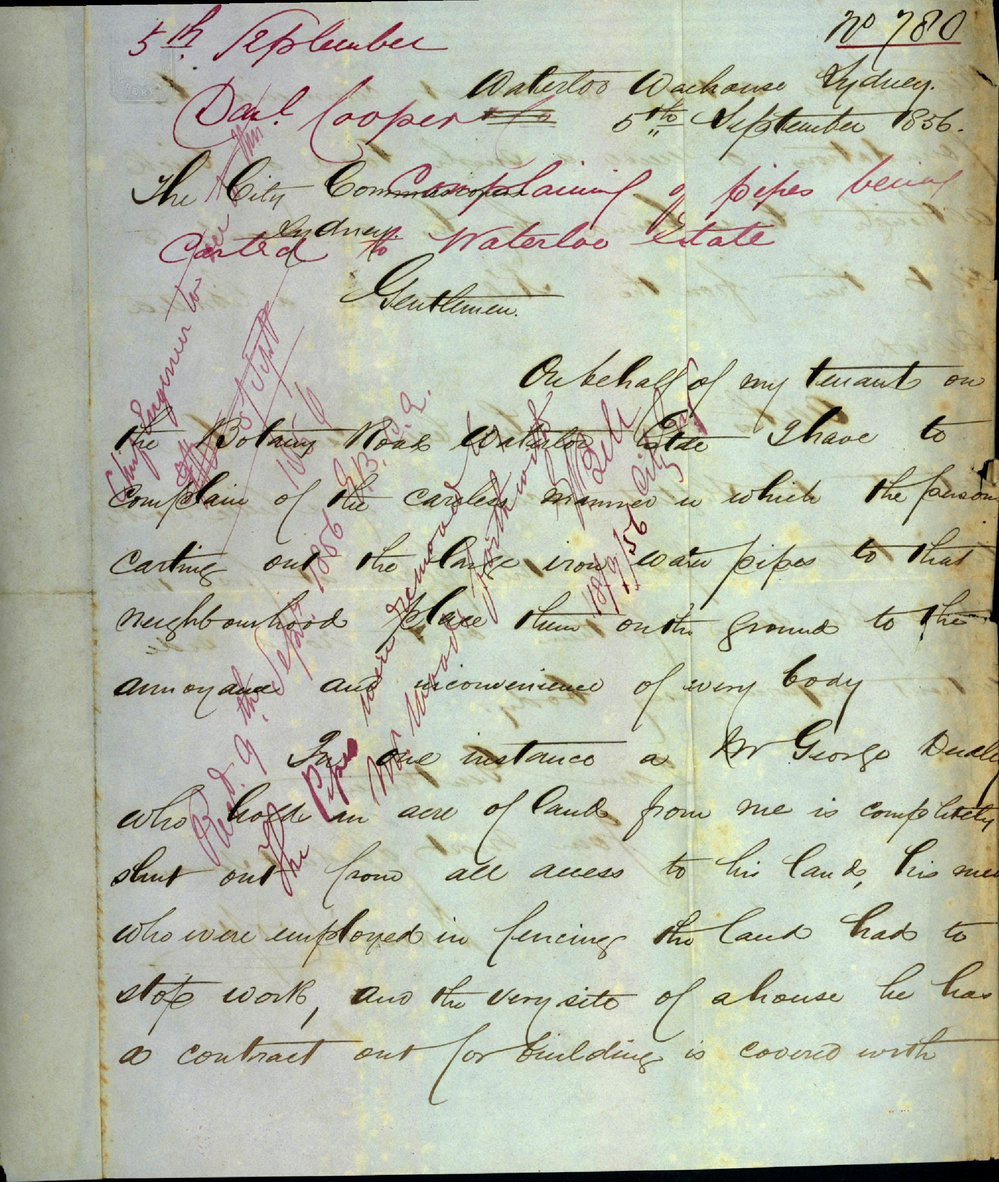 5th September
No 780
Waterloo Warehouse Sydney.
Danl. Cooper
5th September 1856.
The City Commissioners
Complaining of pipes being
Sydney.
Carted to Waterloo Estate
Gentlemen.
On behalf of my tenant on
the Botany Road Waterloo Estate I have to
complain of the careless manner in which the person
carting out the large iron water pipes to that
neighbourhood place them on the ground to the
annoyance and inconvenience of every body
In one instance a Mr George
who holds an acre of land from me is completely
shut out from all access to his land, his men
who were employed in fencing the land had to
stop work, and the very site of a house he has
a contract out for building is covered with
City Engineer to see to this
Recd. 9th Septr. 1856 E.B. C.E.
The Pipes were removed by
Mr Wood forthwith
W Bell
18/9/56 City Engr